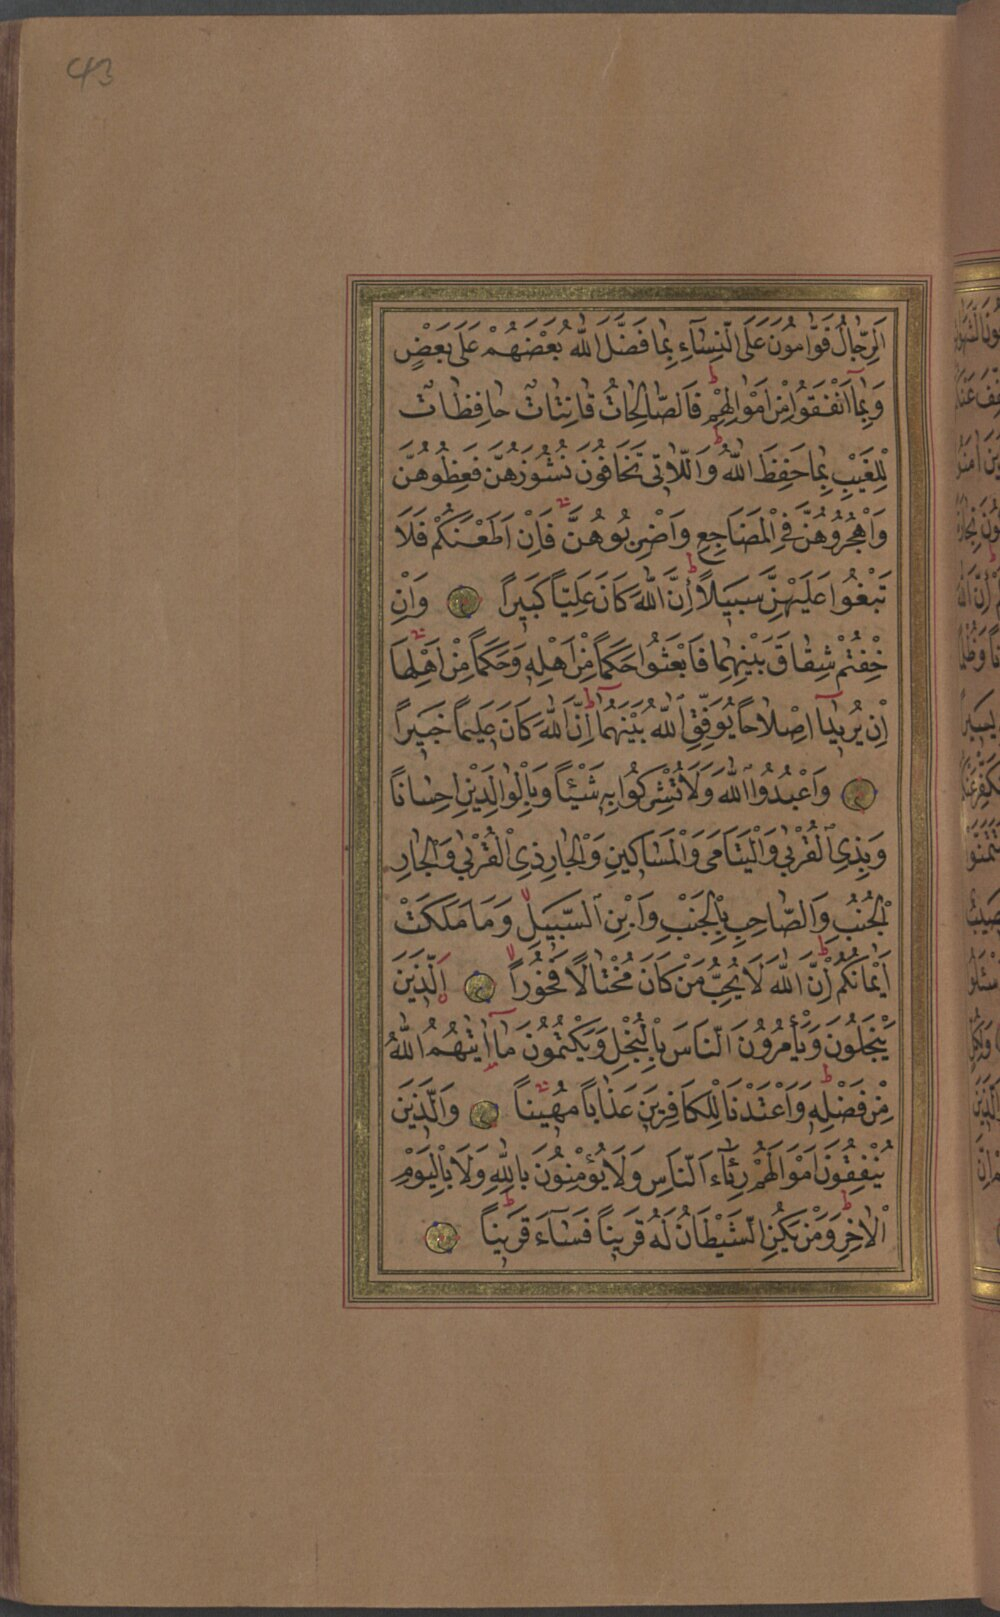 43
اَلرِّجَالُ قَوَّامُونَ عَلَى النِّسَٓاءِ بِمَا فَضَّلَ اللّٰهُ بَعْضَهُمْ عَلٰى بَعْضٍ
وَبِمَٓا اَنْفَقُوا مِنْ اَمْوَالِهِمْ فَالصَّالِحَاتُ قَانِتَاتٌ حَافِظَاتٌ
لِلْغَيْبِ بِمَا حَفِظَ اللّٰهُ وَاللَّاتِى تَخَافُونَ نُشُوزَهُنَّ فَعِظُوهُنَّ
وَاهْجُرُوهُنَّ فِى الْمَضَاجِعِ وَاضْرِبُوهُنَّ فَاِنْ اَطَعْنَكُمْ فَلَا
تَبْغُوا عَلَيْهِنَّ سَبِيلًا اِنَّ اللّٰهَ كَانَ عَلِيًّا كَبِيرًا وَاِنْ
خِفْتُمْ شِقَاقَ بَيْنِهِمَا فَابْعَثُوا حَكَمًا مِنْ اَهْلِهِ وَحَكَمًا مِنْ اَهْلِهَا
اِنْ يُرِيدَٓا اِصْلَاحًا يُوَفِّقِ اللّٰهُ بَيْنَهُمَا اِنَّ اللّٰهَ كَانَ عَلِيمًا خَبِيرًا
وَاعْبُدُوا اللّٰهَ وَلَا تُشْرِكُوا بِهِ شَيْـًٔا وَبِالْوَالِدَيْنِ اِحْسَانًا
وَبِذِى الْقُرْبٰى وَالْيَتَامٰى وَالْمَسَاكِينِ وَالْجَارِ ذِى الْقُرْبٰى وَالْجَارِ
الْجُنُبِ وَالصَّاحِبِ بِالْجَنْبِ وَابْنِ السَّبِيلِ وَمَا مَلَكَتْ
اَيْمَانُكُمْ اِنَّ اللّٰهَ لَا يُحِبُّ مَنْ كَانَ مُخْتَالًا فَخُورًا اَلَّذِينَ
يَبْخَلُونَ وَيَأْمُرُونَ النَّاسَ بِالْبُخْلِ وَيَكْتُمُونَ مَٓا اٰتٰيهُمُ اللّٰهُ
مِنْ فَضْلِهِ وَاَعْتَدْنَا لِلْكَافِرِينَ عَذَابًا مُهِينًا وَالَّذِينَ
يُنْفِقُونَ اَمْوَالَهُمْ رِئَٓاءَ النَّاسِ وَلَا يُؤْمِنُونَ بِاللّٰهِ وَلَا بِالْيَوْمِ
الْاٰخِرِ وَمَنْ يَكُنِ الشَّيْطَانُ لَهُ قَرِينًا فَسَٓاءَ قَرِينًا